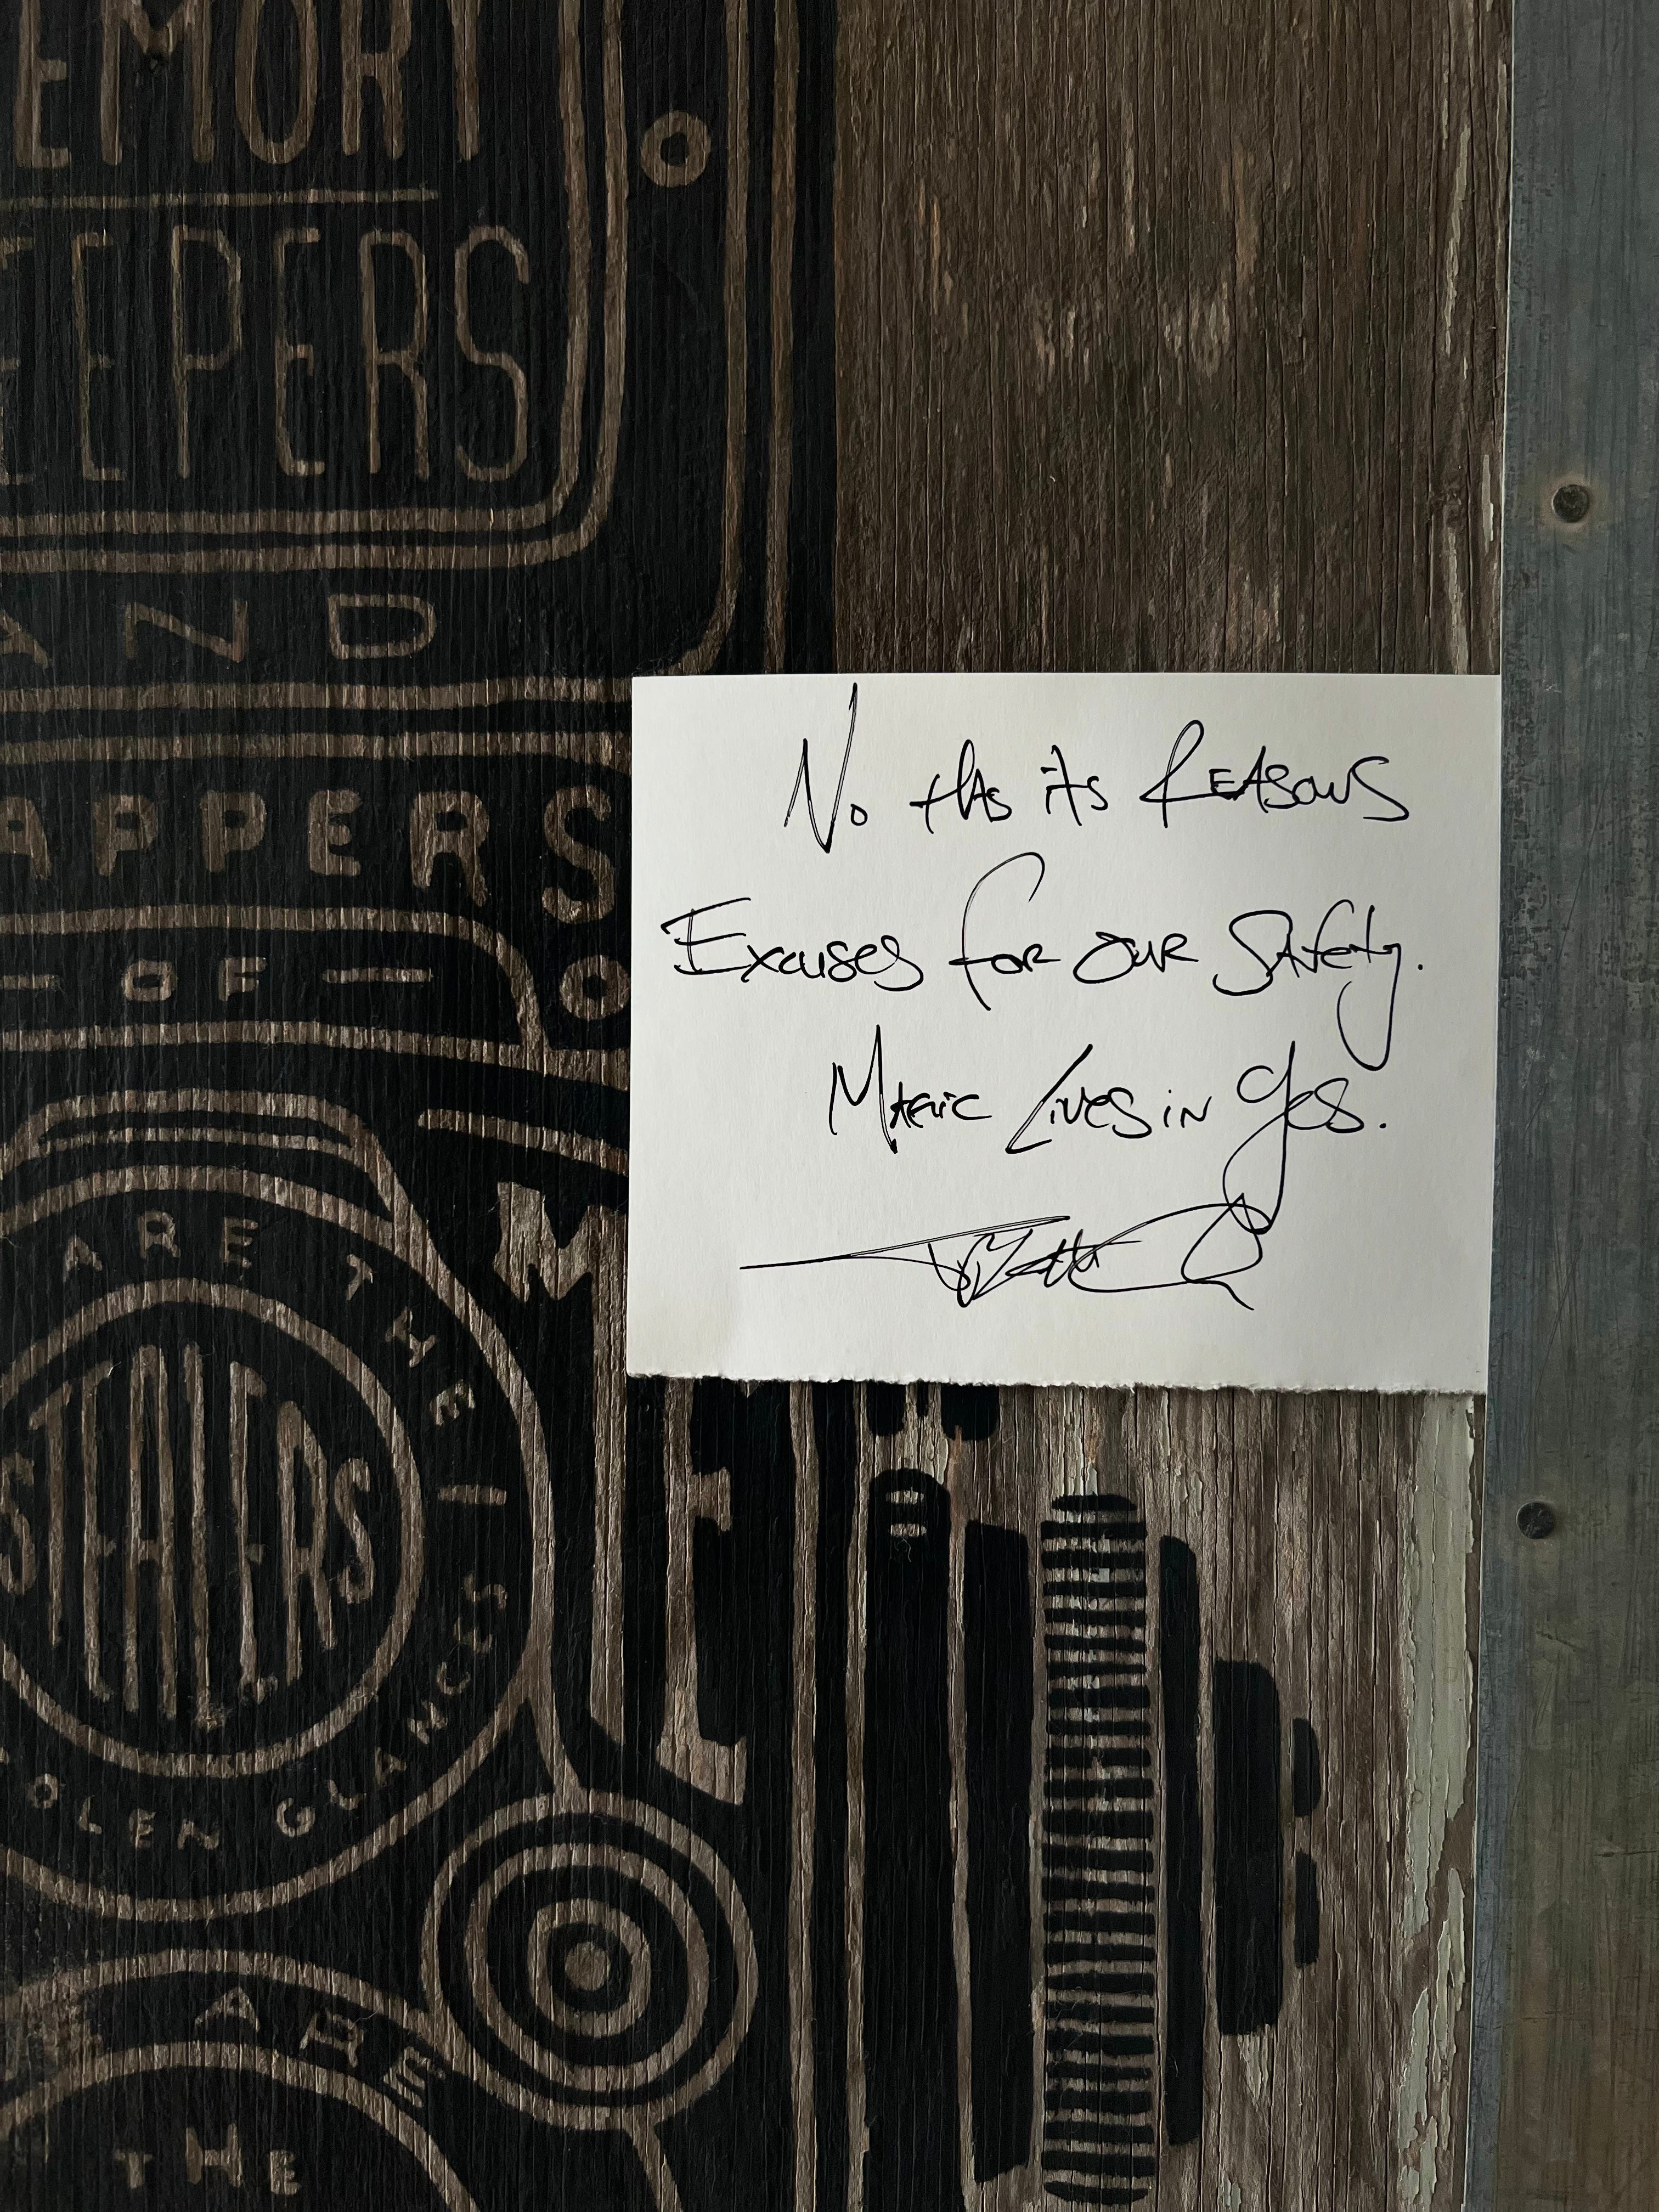 EMORY
EEPERS
AND
APPERS
OF
ARE THE
STEALERS
OLEN GLANCES
ARE
THE
No Has its Reasons
Excuses for our Safety.
Magic Lives in Yes.